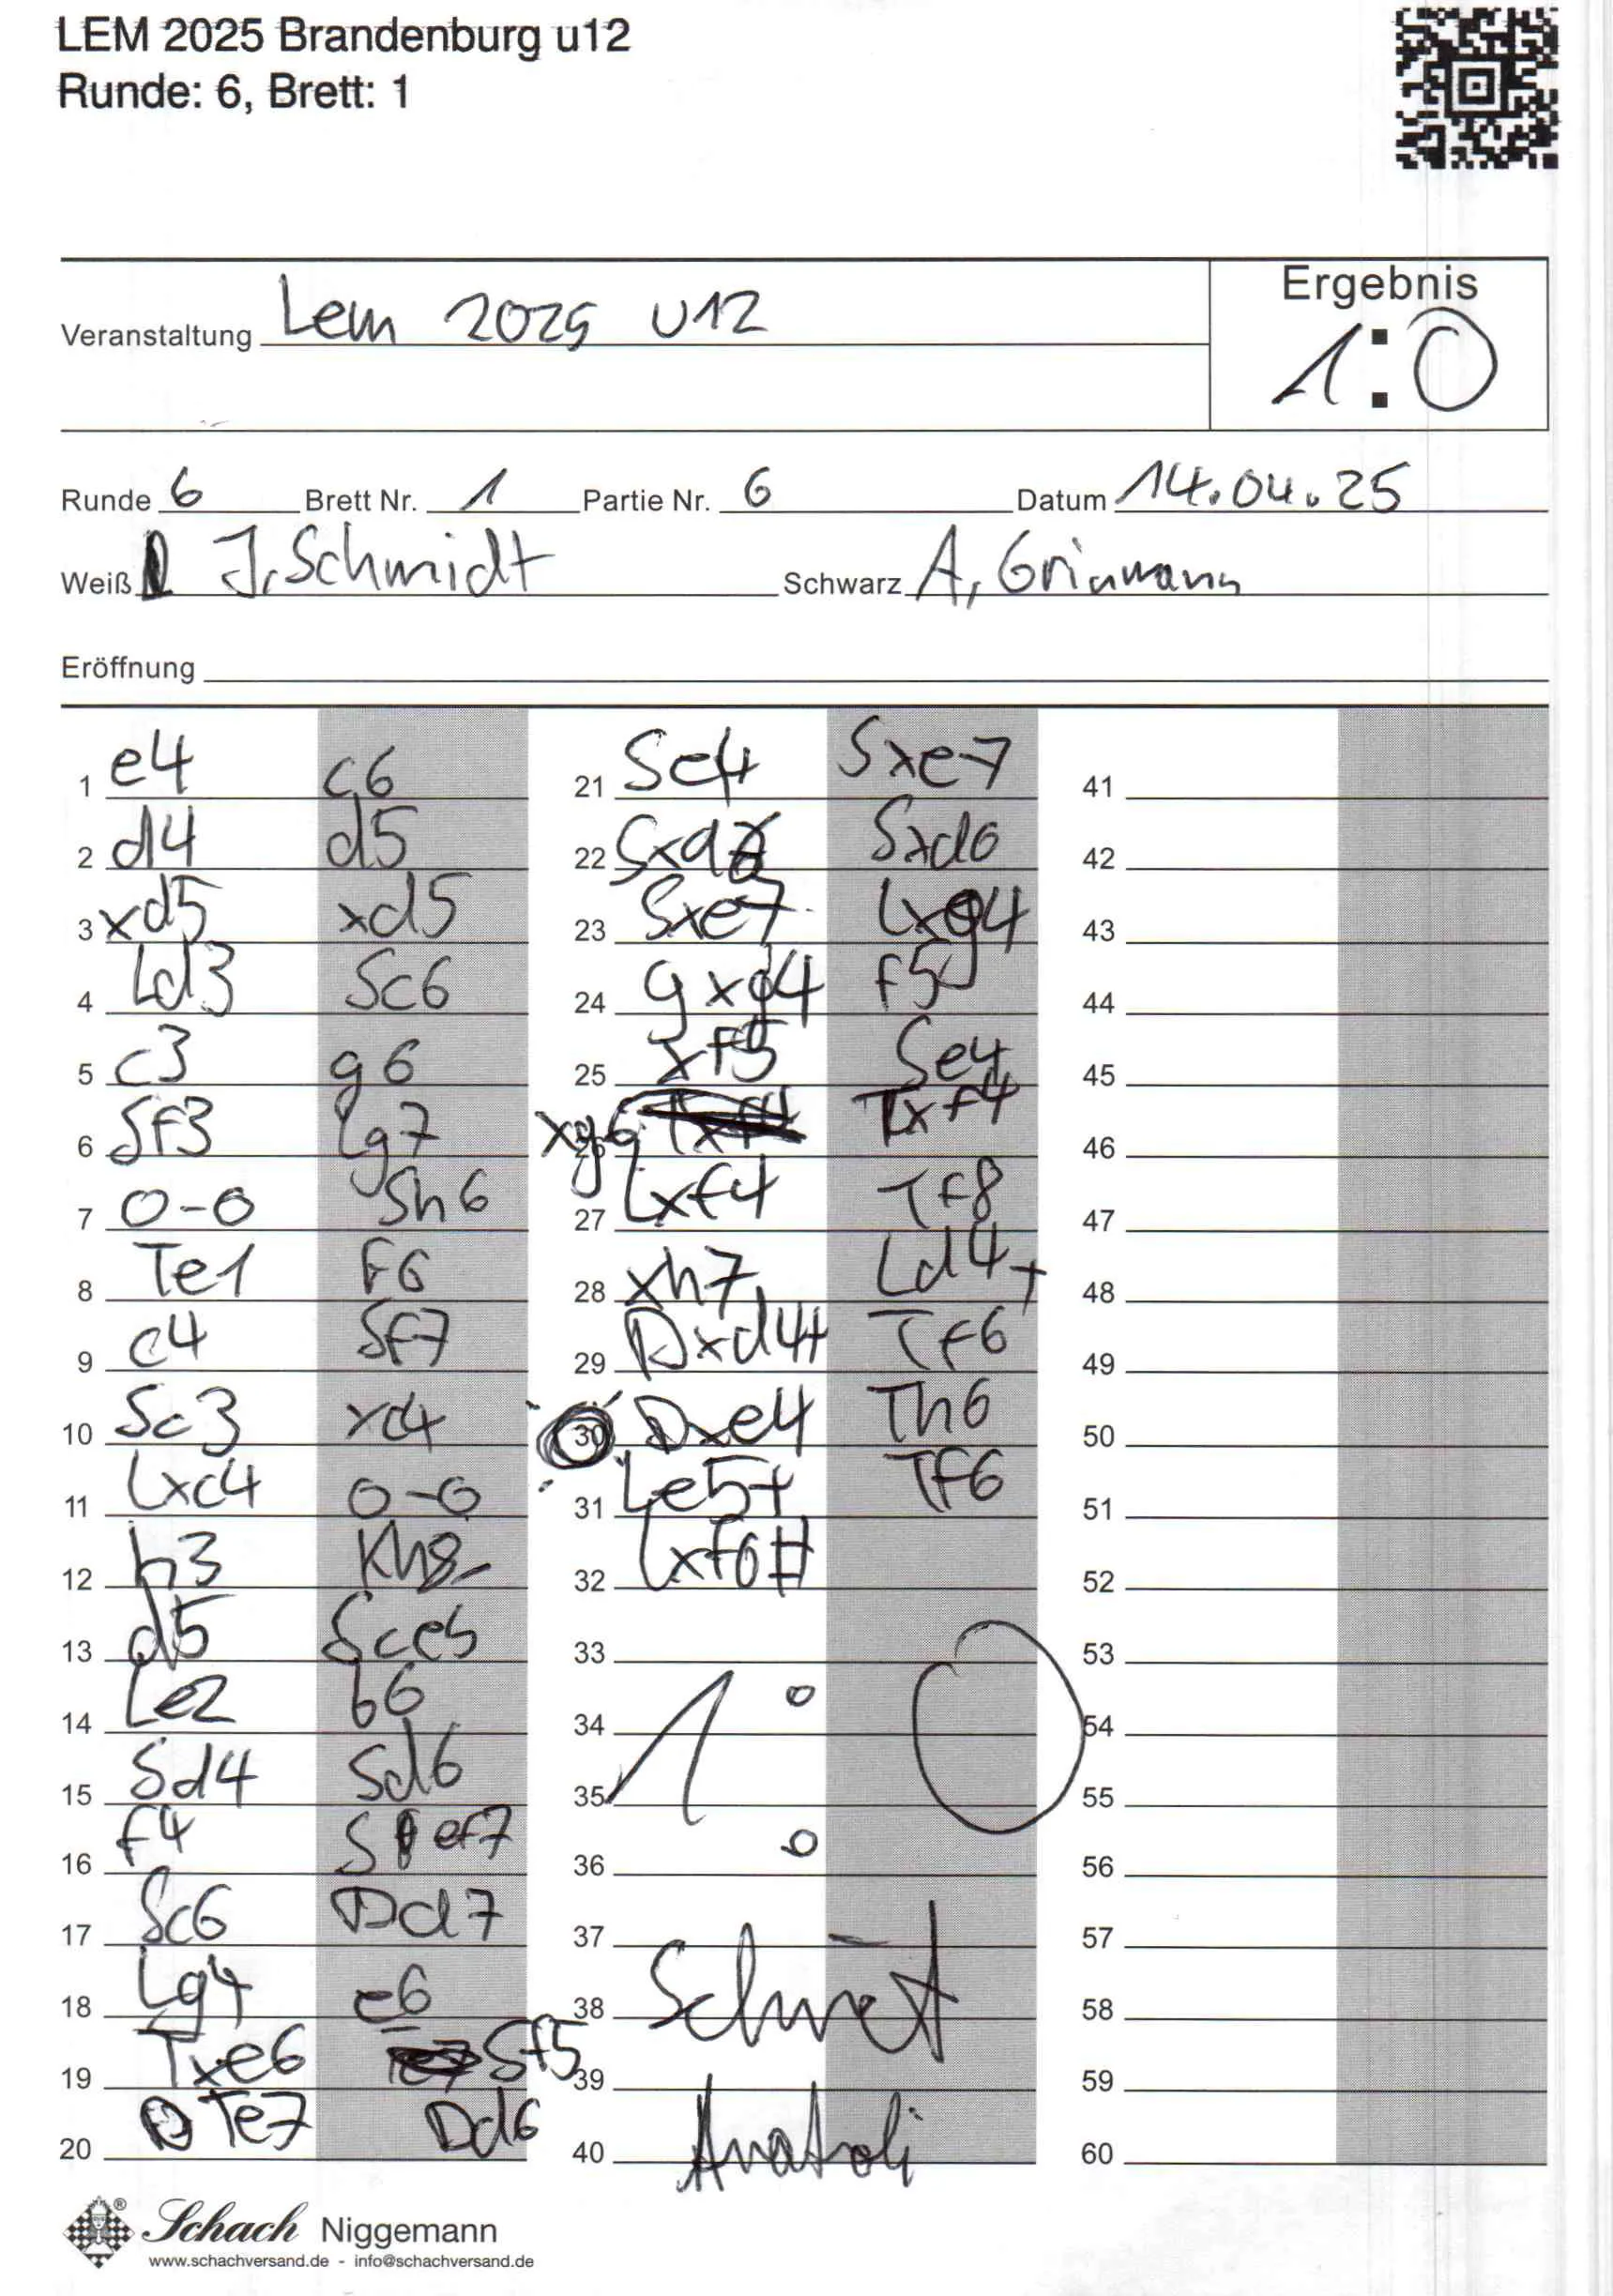 LEM 2025 Brandenburg u12
Runde: 6, Brett: 1
Veranstaltung Lem 2025 U12
Ergebnis
1:0
Runde 6 Brett Nr. 1 Partie Nr. 6 Datum 14.04.25
Weiß J. Schmidt Schwarz A. Grinmann
Eröffnung
1 e4 c6
2 d4 d5
3 xd5 xd5
4 Ld3 Sc6
5 c3 g6
6 Sf3 Lg7
7 0-0 Sh6
8 Te1 F6
9 c4 Sf7
10 Sc3 xc4
11 Lxc4 0-0
12 h3 Kh8
13 d5 Sce5
14 Le2 b6
15 Sd4 Sd6
16 f4 Sef7
17 Sc6 Dd7
18 Lg4 e6
19 Txe6 Sf5
20 Te7 Dd6
21 Se4 Sxe7
22 Sxd6 Sxd6
23 Sxe7 Lxg4
24 gxg4 f5
25 xf5 Se4
26 xg6 Txf4
27 Lxf4 Tf8
28 xh7 Ld4+
29 Dxd4+ Tf6
30 Dxe4 Th6
31 Le5+ Tf6
32 Lxf6#
33
34
35
36
1:0
37
38 Schmidt
39
40 Anatoli
41
42
43
44
45
46
47
48
49
50
51
52
53
54
55
56
57
58
59
60
Schach Niggemann
www.schachversand.de - info@schachversand.de